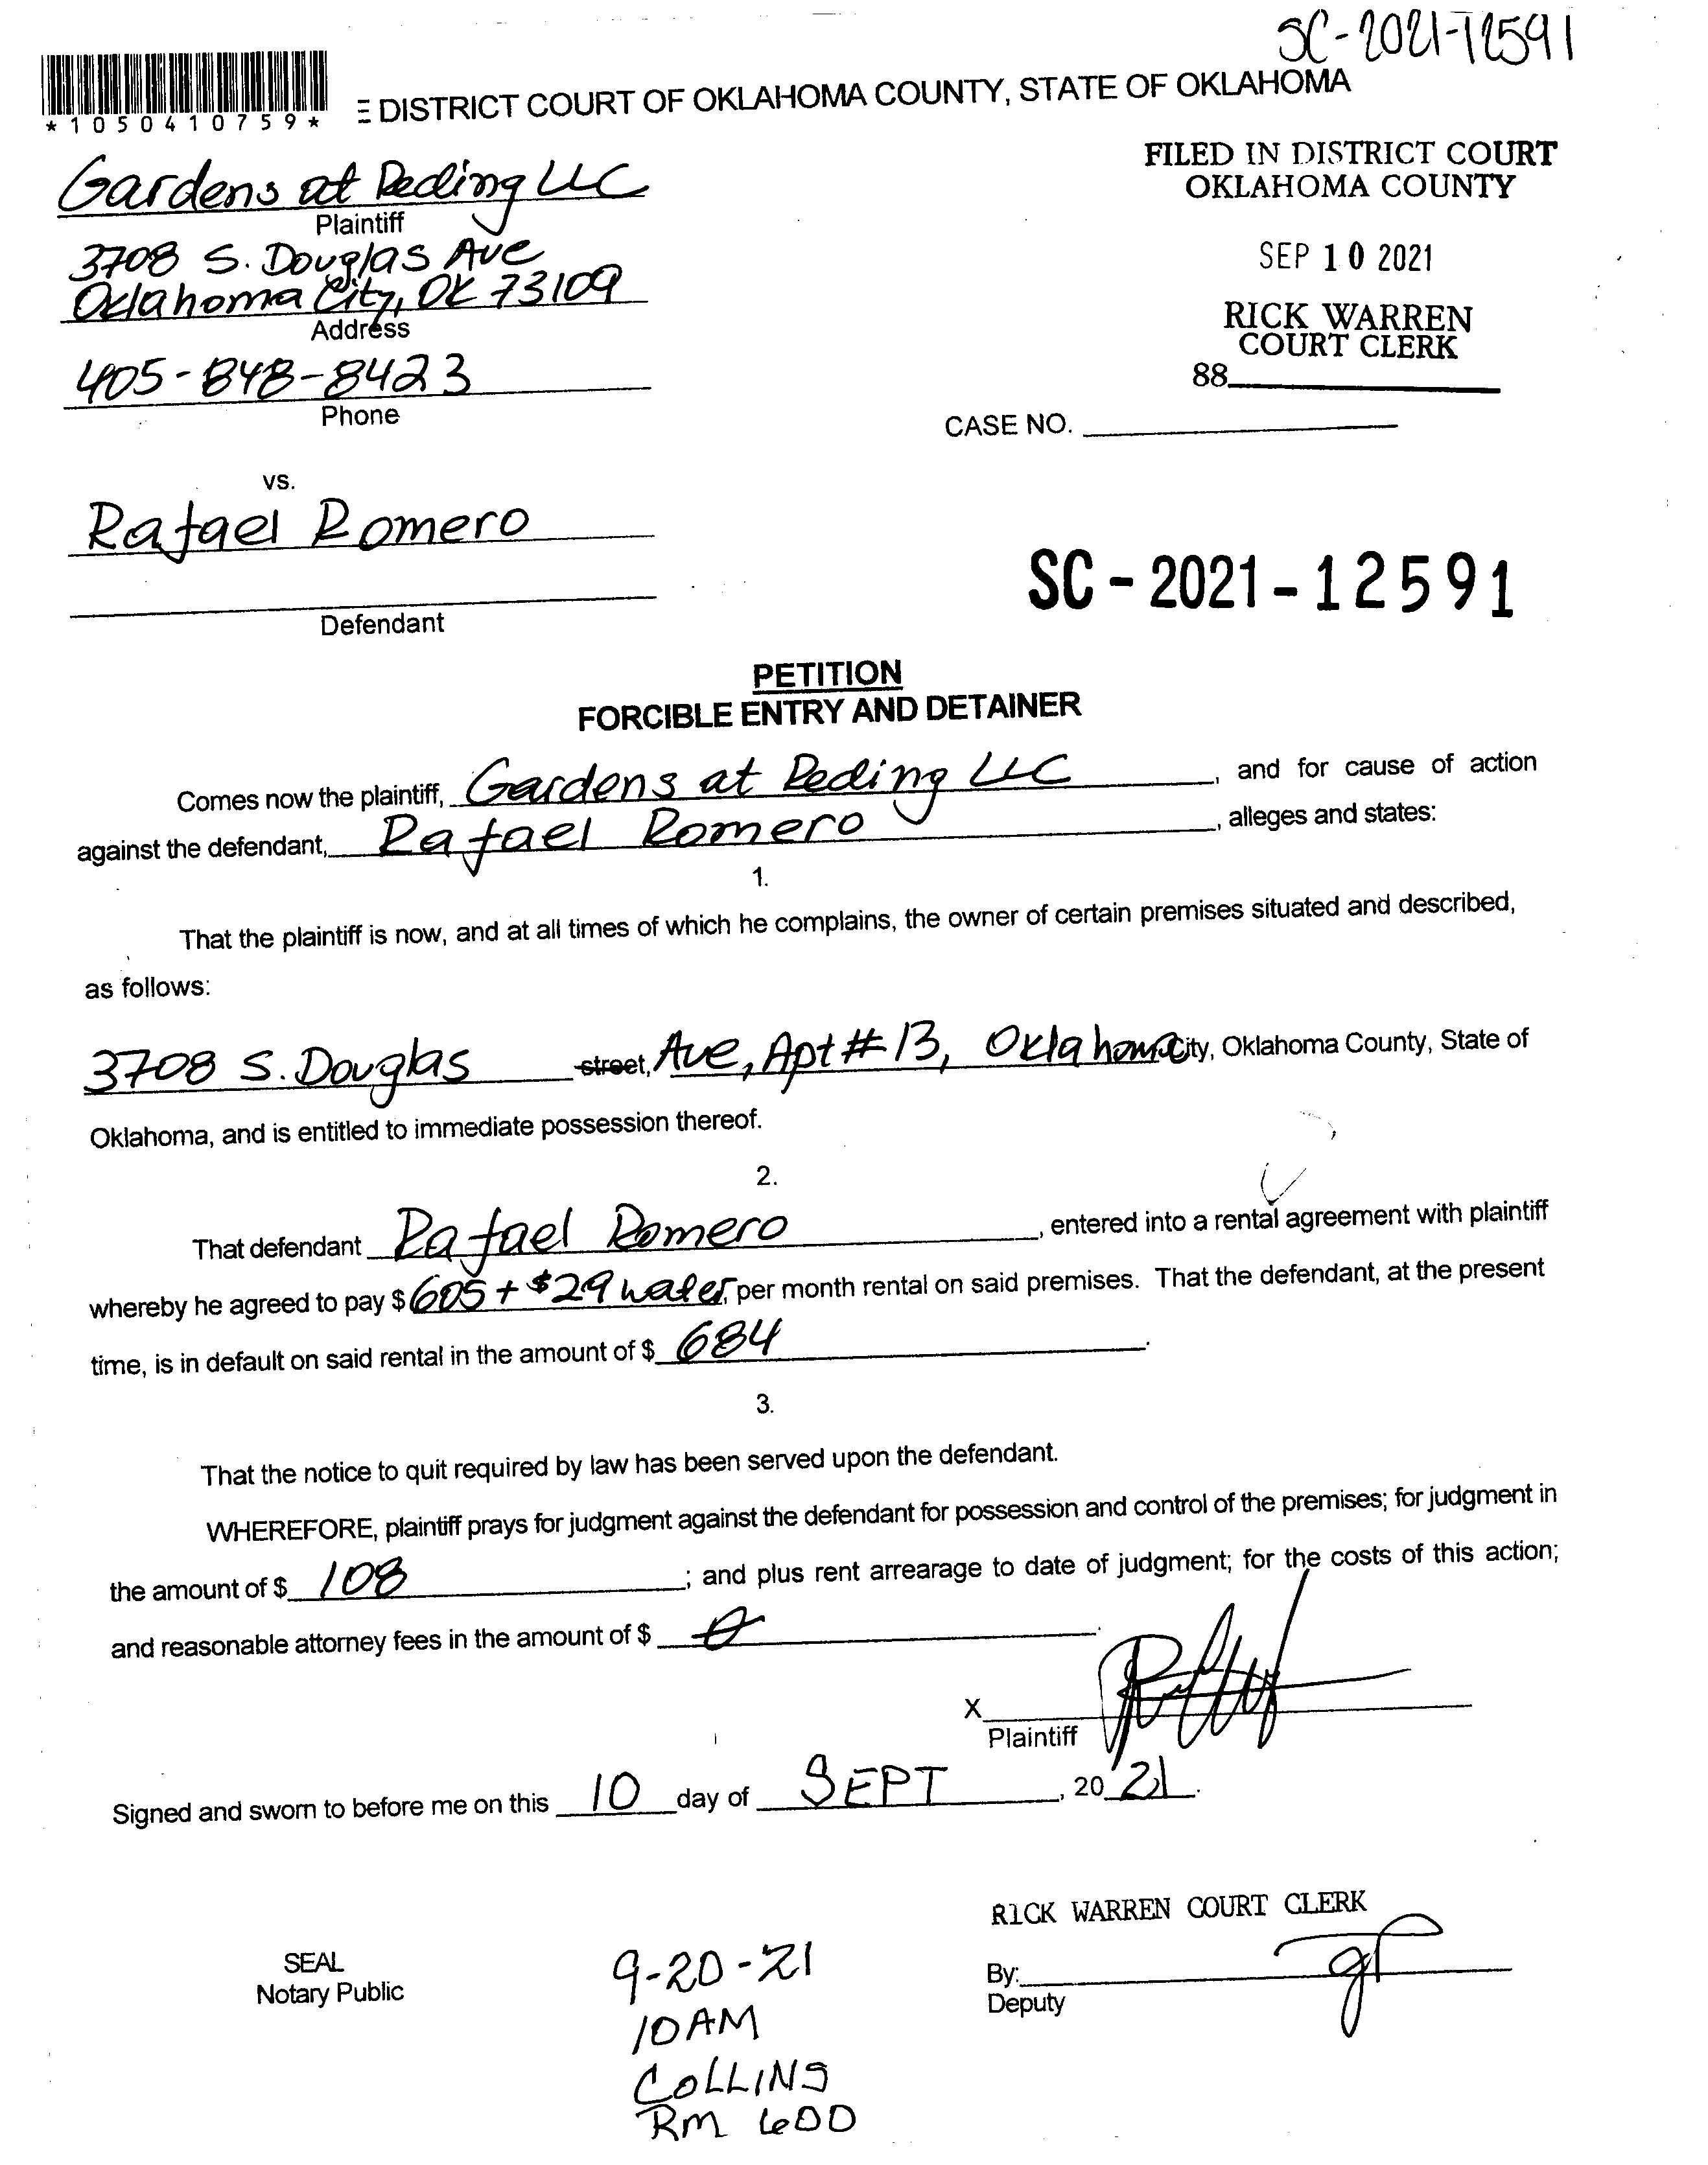 SC-2021-12591
*1050410759*
E DISTRICT COURT OF OKLAHOMA COUNTY, STATE OF OKLAHOMA
FILED IN DISTRICT COURT
OKLAHOMA COUNTY
SEP 10 2021
RICK WARREN
COURT CLERK
88
Gardens at Reding LLC
Plaintiff
3708 S. Douglas Ave
Oklahoma City, OK 73109
Address
405-848-8423
Phone
CASE NO.
vs.
Rafael Romero
Defendant
SC-2021-12591
PETITION
FORCIBLE ENTRY AND DETAINER
Comes now the plaintiff, Gardens at Reding LLC, and for cause of action
against the defendant, Rafael Romero, alleges and states:
1.
That the plaintiff is now, and at all times of which he complains, the owner of certain premises situated and described,
as follows:
3708 S. Douglas street, Ave, Apt # 13, Oklahoma City, Oklahoma County, State of
Oklahoma, and is entitled to immediate possession thereof.
2.
That defendant Rafael Romero, entered into a rental agreement with plaintiff
whereby he agreed to pay $ 605 + $29 water, per month rental on said premises. That the defendant, at the present
time, is in default on said rental in the amount of $ 684.
3.
That the notice to quit required by law has been served upon the defendant.
WHEREFORE, plaintiff prays for judgment against the defendant for possession and control of the premises; for judgment in
the amount of $ 108; and plus rent arrearage to date of judgment; for the costs of this action;
and reasonable attorney fees in the amount of $ 0.
X
Plaintiff
Signed and sworn to before me on this 10 day of SEPT, 2021.
RICK WARREN COURT CLERK
SEAL
Notary Public
By:
Deputy
9-20-21
10AM
COLLINS
RM 600